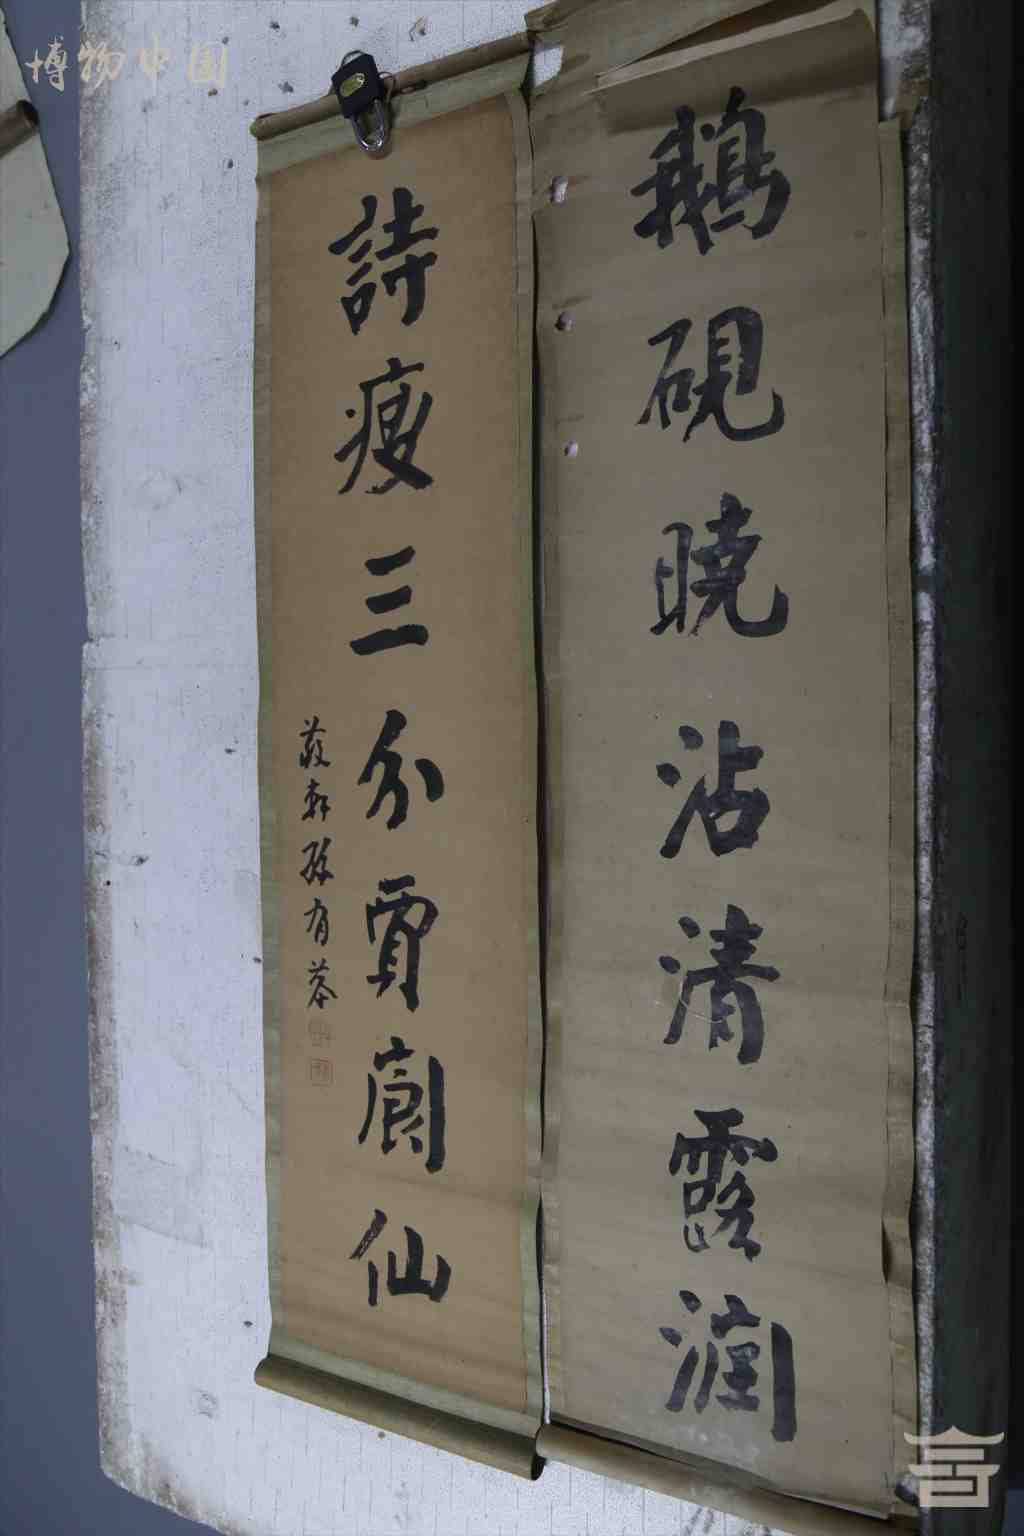 博物中国
鵝硯曉沾清露潤
詩瘦三分賈閬仙
孫有